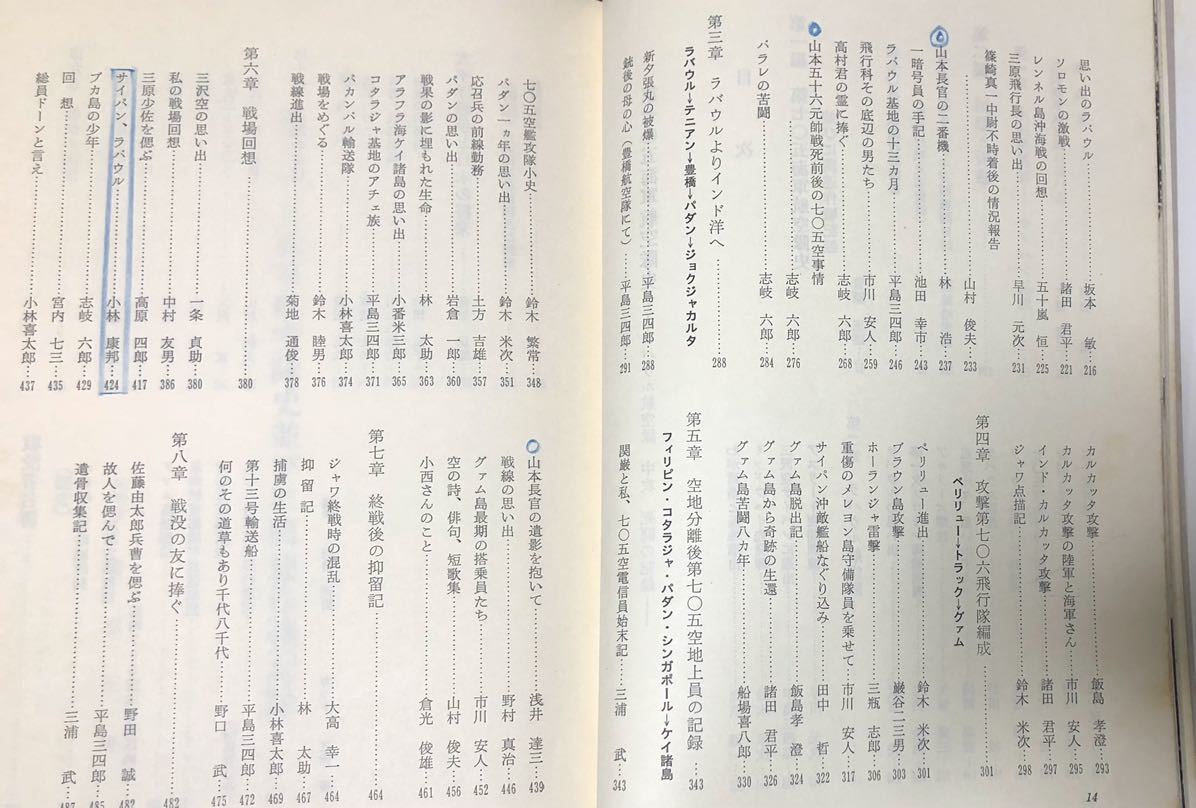 思い出のラバウル……坂本　敏…216
ソロモンの激戦……諸田　君平…221
レンネル島沖海戦の回想……五十嵐　恒…225
三原飛行長の思い出……早川　元次…231
篠崎真一中尉不時着後の情況報告……山村　俊夫…233
山本長官の二番機……林　浩…237
一暗号員の手記……池田　幸市…243
ラバウル基地の十三カ月……平島三四郎…246
飛行科その底辺の男たち……市川　安人…259
高村君の霊に捧ぐ……志岐　六郎…268
山本五十六元帥戦死前後の七〇五空事情……志岐　六郎…276
バラレの苦闘……志岐　六郎…284
第三章　ラバウルよりインド洋へ……288
ラバウル→テニアン→豊橋→パダン→ジョクジャカルタ
新夕張丸の被爆……平島三四郎…288
銃後の母の心（豊橋航空隊にて）……平島三四郎…291
カルカッタ攻撃……飯島　孝澄…293
カルカッタ攻撃の陸軍と海軍さん……市川　安人…295
インド・カルカッタ攻撃……諸田　君平…297
ジャワ点描記……鈴木　米次…298
第四章　攻撃第七〇六飛行隊編成……301
ペリリュー→トラック→グァム
ペリリュー進出……鈴木　米次…301
ブラウン島攻撃……巌谷二三男…303
ホーランジャ雷撃……三瓶　志郎…306
重傷のメレヨン島守備隊員を乗せて……市川　安人…317
サイパン沖敵艦船なぐり込み……田中　哲…322
グァム島脱出記……飯島孝　澄…324
グァム島から奇跡の生還……諸田　君平…326
グァム島苦闘八カ年……船場喜八郎…330
第五章　空地分離後第七〇五空地上員の記録……343
フィリピン・コタラジャ・パダン・シンガポール→ケイ諸島
関厳と私、七〇五空電信員始末記……三浦　武…343
14
七〇五空艦攻隊小史……鈴木　繁常…348
パダン一ヵ年の思い出……鈴木　米次…351
応召兵の前線勤務……土方　吉雄…357
パダンの思い出……岩倉　一郎…360
戦果の影に埋もれた生命……林　太助…363
アラフラ海ケイ諸島の思い出……小番米三郎…365
コタラジャ基地のアチェ族……平島三四郎…371
パカンバル輸送隊……小林喜太郎…374
戦場をめぐる……鈴木　睦男…376
戦線進出……菊地　通俊…378
第六章　戦場回想……380
三沢空の思い出……一条　貞助…380
私の戦場回想……中村　友男…386
三原少佐を偲ぶ……高原　四郎…417
サイパン、ラバウル……小林　康邦…424
ブカ島の少年……志岐　六郎…429
回　想……宮内　七三…435
総員ドーンと言え……小林喜太郎…437
山本長官の遺影を抱いて……浅井　達三…439
戦線の思い出……野村　真治…446
グァム島最期の搭乗員たち……市川　安人…452
空の詩、俳句、短歌集……山村　俊夫…456
小西さんのこと……倉光　俊雄…461
第七章　終戦後の抑留記……464
ジャワ終戦時の混乱……大高　幸一…464
抑留記……林　太助…467
捕虜の生活……小林喜太郎…469
第十三号輸送船……平島三四郎…472
何のその道草もあり千代八千代……野口　武…475
第八章　戦没の友に捧ぐ……482
佐藤由太郎兵曹を偲ぶ……野田　誠…482
故人を偲んで……平島三四郎…485
遺骨収集記……三浦　武…487